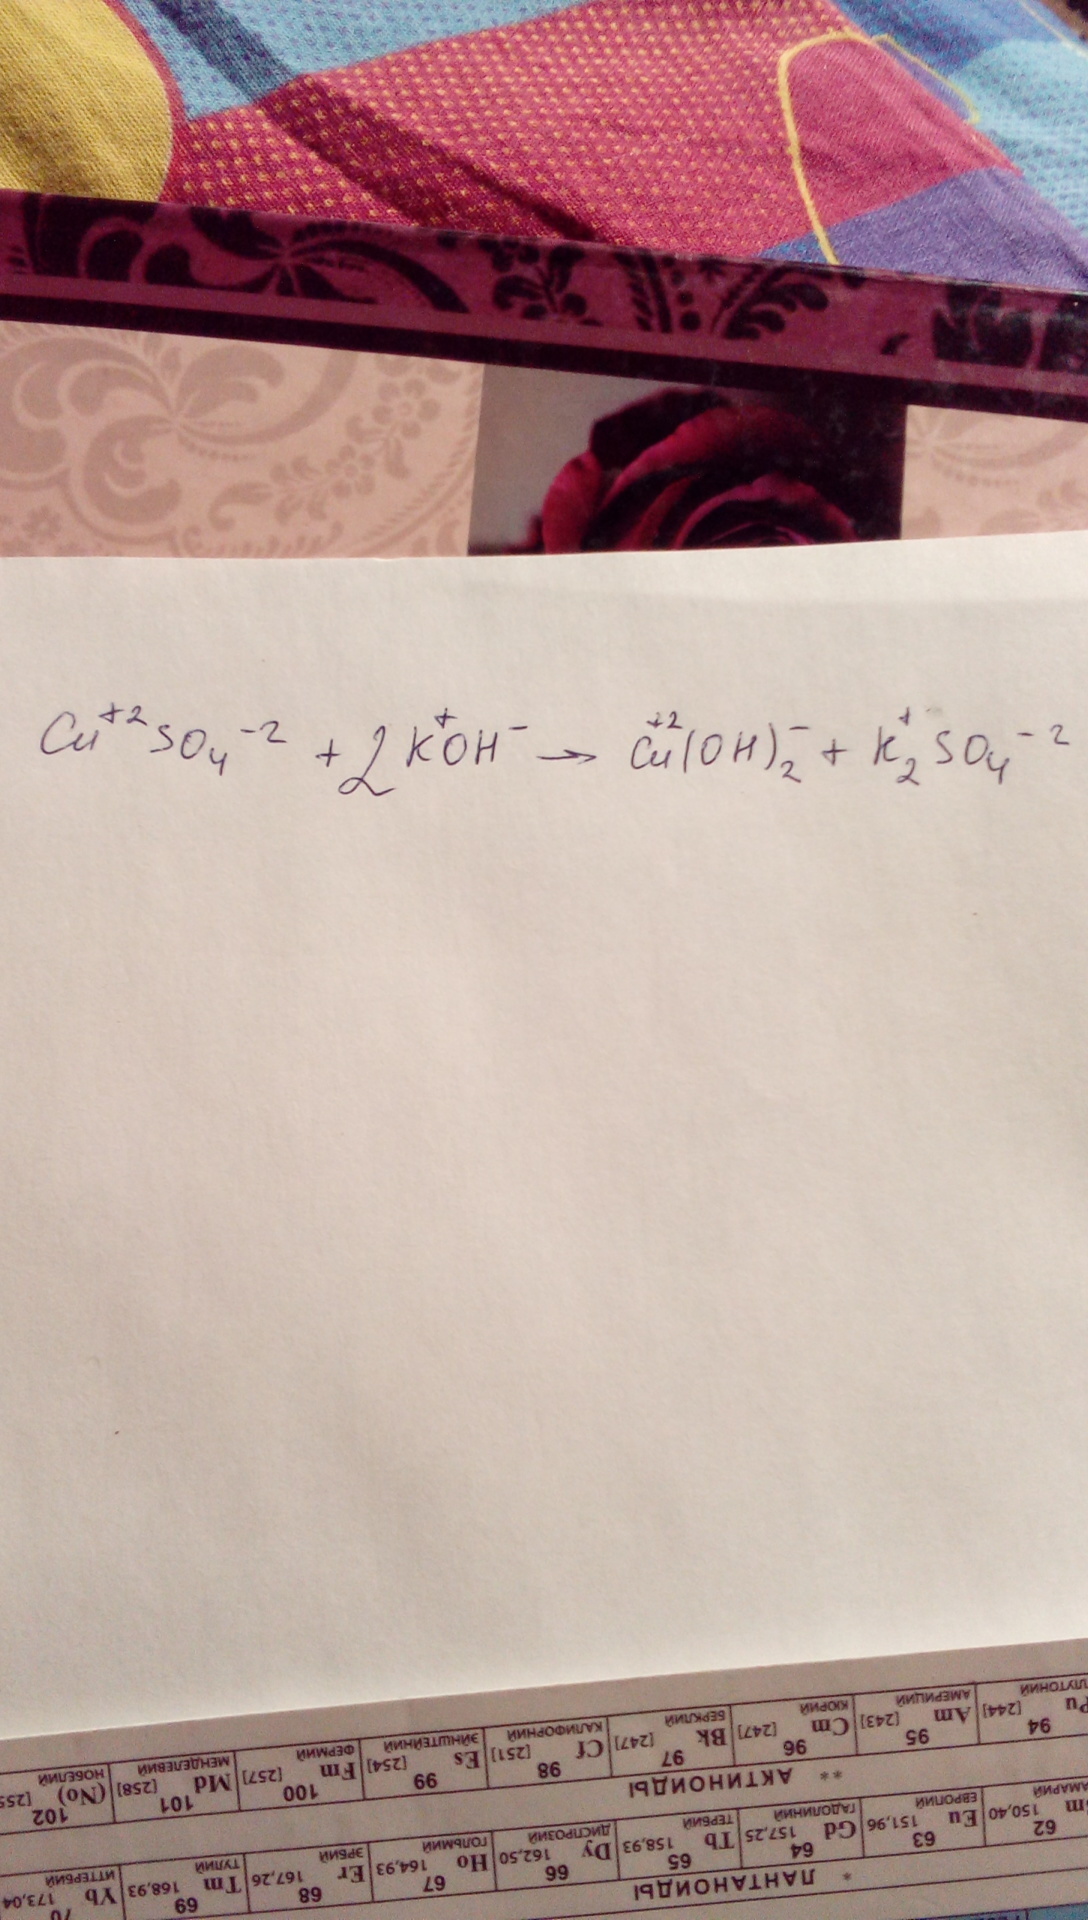 Cu⁺²SO₄⁻² + 2K⁺OH⁻ → Cu⁺²(OH)₂⁻ + K₂⁺SO₄⁻²
НОБЕЛИЙ МЕНДЕЛЕВИЙ ФЕРМИЙ ЭЙНШТЕЙНИЙ КАЛИФОРНИЙ БЕРКЛИЙ КЮРИЙ АМЕРИЦИЙ ПЛУТОНИЙ
(No) Md [258] Fm [257] Es [254] Cf [251] Bk [247] Cm [247] Am [243] [244]
102 101 100 99 98 97 96 95 94
** АКТИНОИДЫ
ИТТЕРБИЙ ТУЛИЙ ЭРБИЙ ГОЛЬМИЙ ДИСПРОЗИЙ ТЕРБИЙ ГАДОЛИНИЙ ЕВРОПИЙ
Yb 173,04 Tm 168,93 Er 167,26 Ho 164,93 Dy 162,50 Tb 158,93 Gd 157,25 Eu 151,96 150,40
69 68 67 66 65 64 63 62
* ЛАНТАНОИДЫ